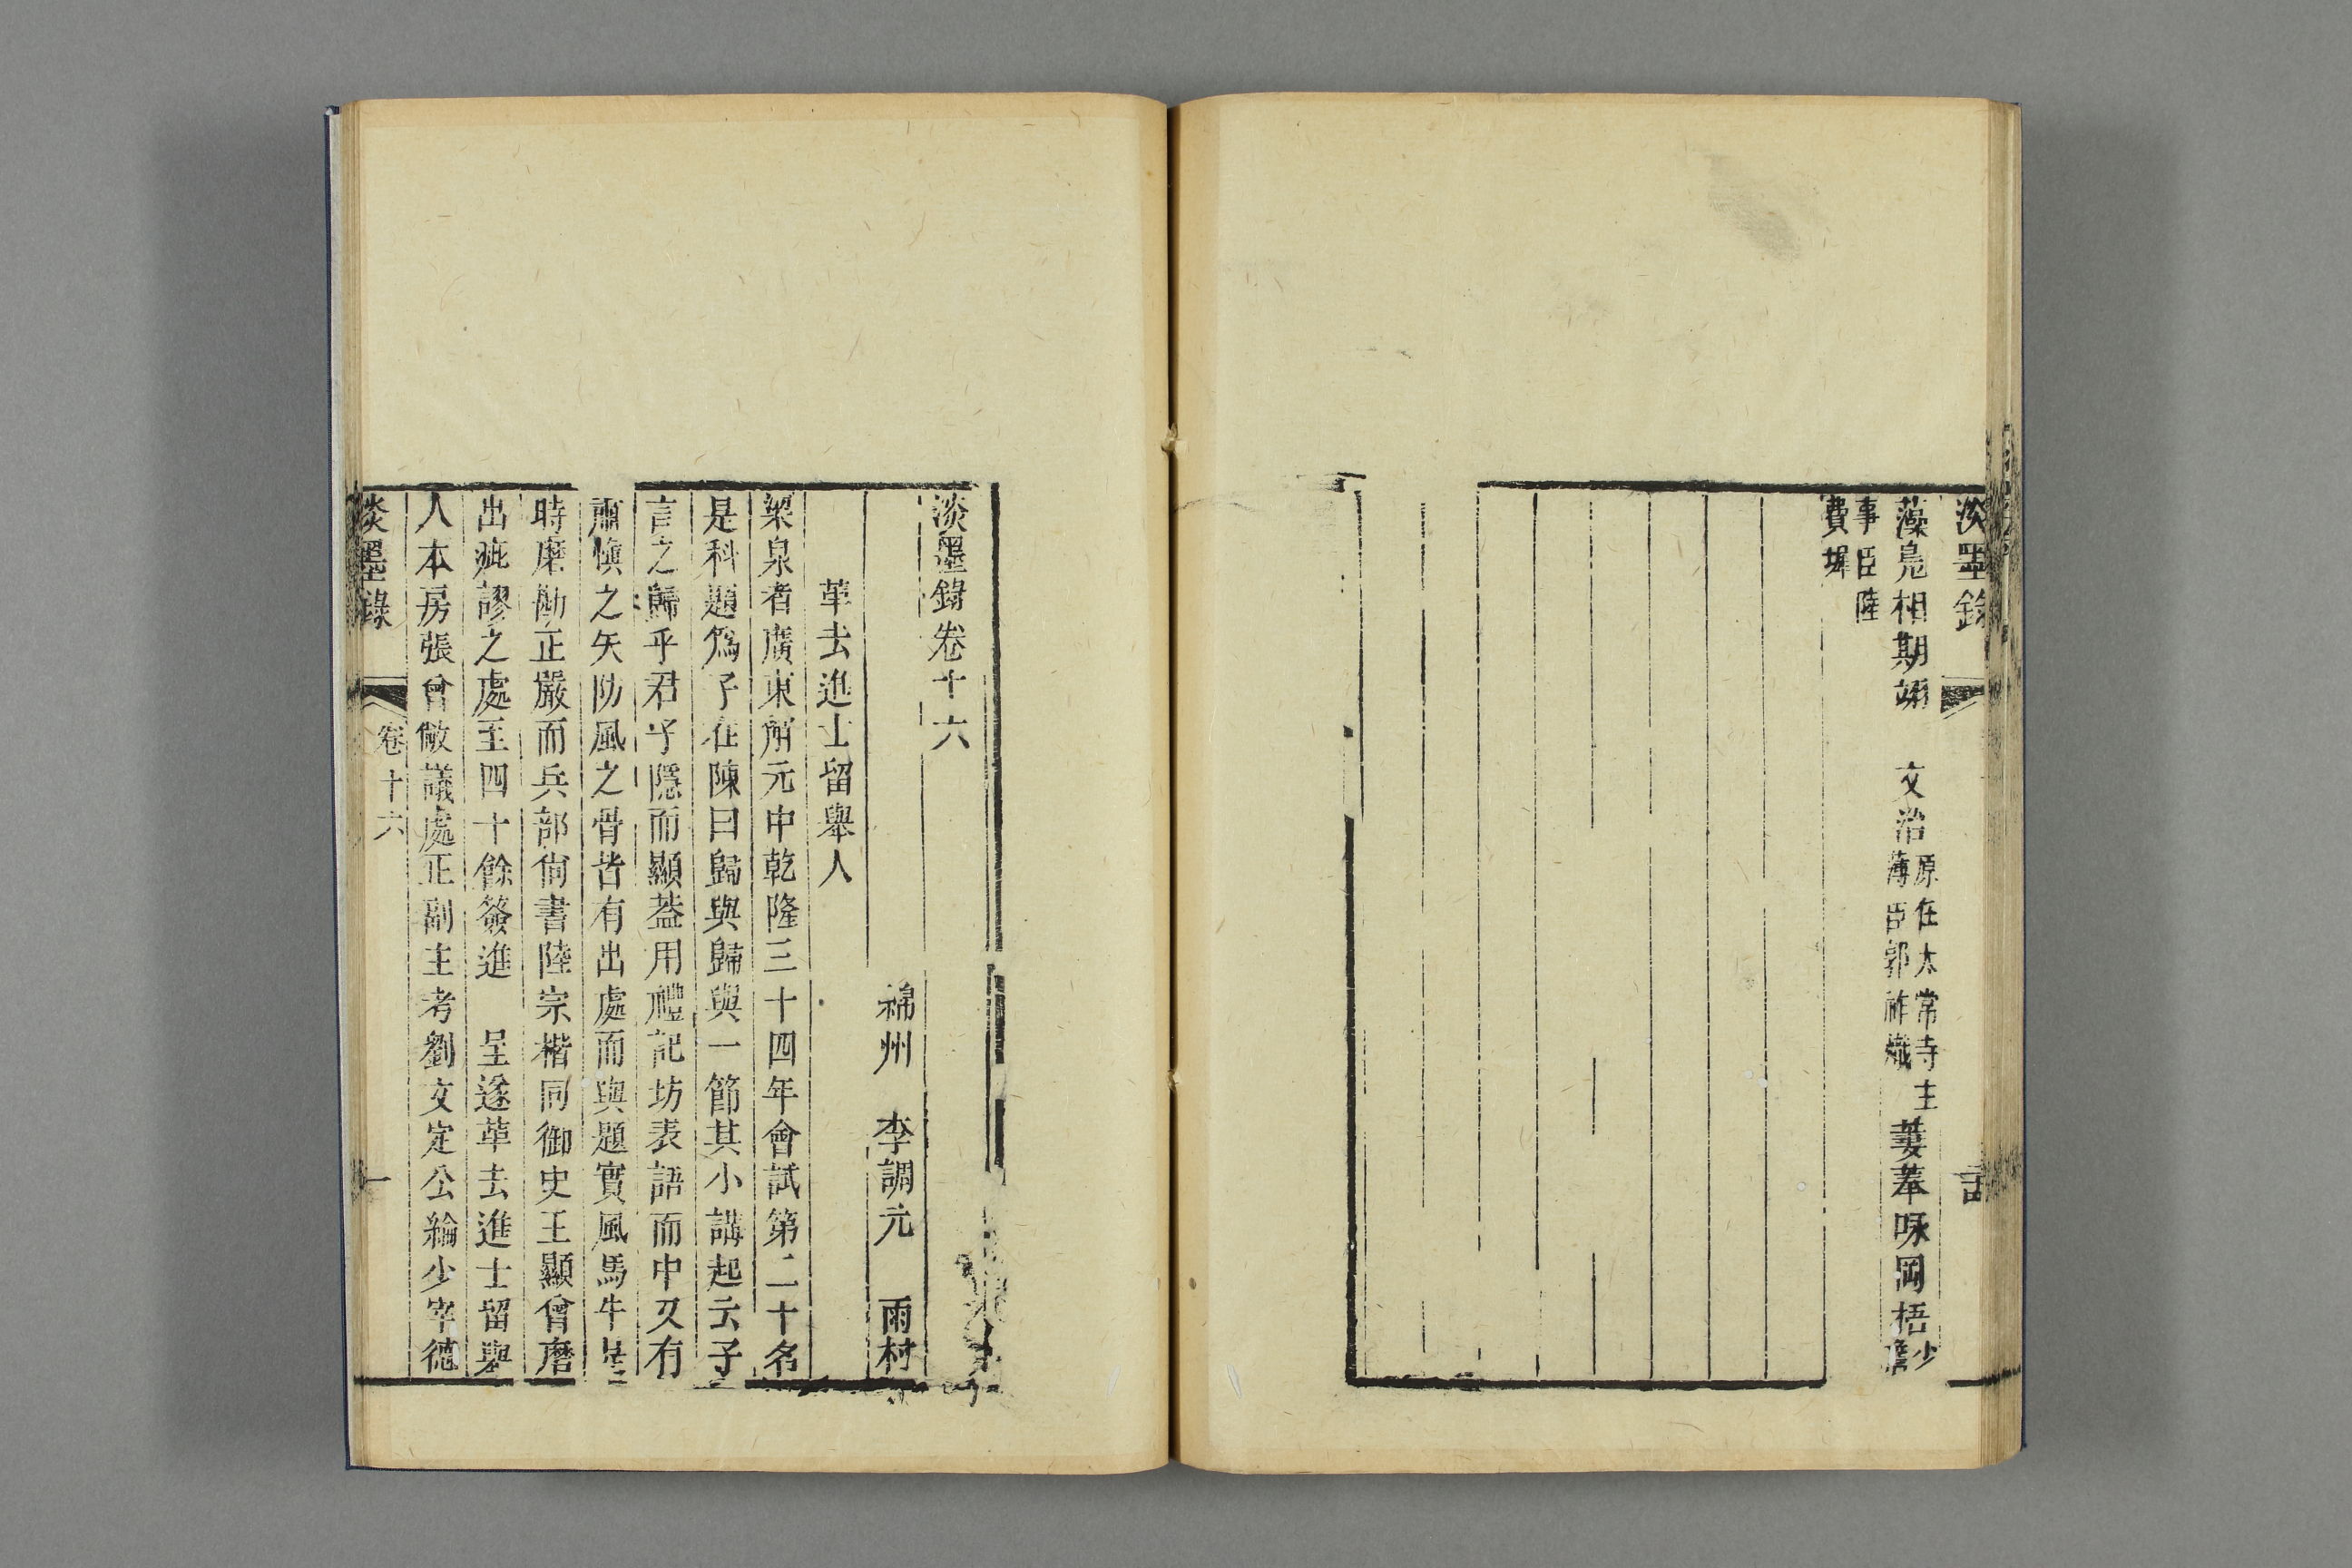 淡墨錄
藻鳧相期竭 文治原在太常寺主薄臣郭祚熾萋菶咏岡梧少詹
事臣陸費墀
淡墨錄卷十六
綿州 李調元 雨村
革去進士留舉人
梁泉者廣東解元中乾隆三十四年會試第二十名
是科題爲子在陳曰歸與歸與一節其小講起云子
言之歸乎君子隱而顯葢用禮記坊表語而中又有
肅慎之矢防風之骨皆有出處而與題實風馬牛是
時磨勘正嚴而兵部尙書陸宗楷同御史王顯曾磨
出疵謬之處至四十餘簽進 呈遂革去進士留舉
人本房張曾敞議處正副主考劉文定公綸少宰德
淡墨錄 卷十六 一